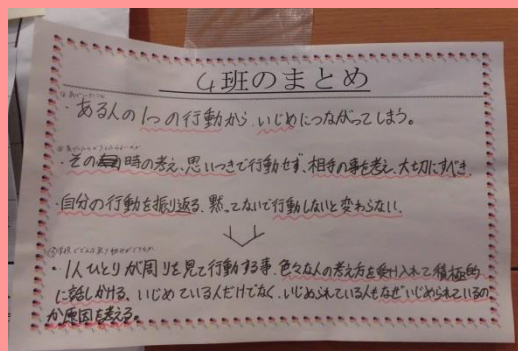 4班のまとめ
・ある人の1つの行動から、いじめにつながってしまう。
・その時の考え、思いつきで行動せず、相手の事を考え、大切にすべき。
・自分の行動を振り返る、黙ってないで行動しないと変わらない。
・1人ひとりが周りを見て行動する事、色々な人の考え方を受け入れて積極的
に話しかける、いじめている人だけでなく、いじめられている人もなぜいじめられているの
か原因を考える。